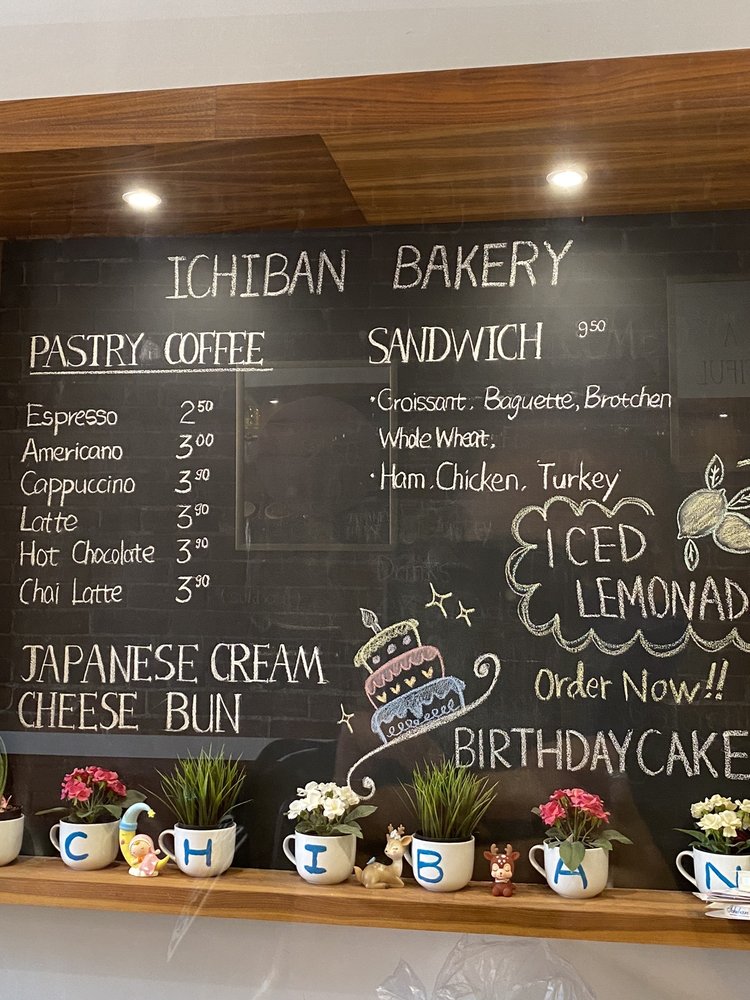 ICHIBAN BAKERY
PASTRY COFFEE
Espresso 2.50
Americano 3.00
Cappuccino 3.90
Latte 3.90
Hot Chocolate 3.90
Chai Latte 3.90
JAPANESE CREAM
CHEESE BUN
SANDWICH 9.50
·Croissant, Baguette, Brotchen
Whole Wheat,
·Ham, Chicken, Turkey
ICED
LEMONAD
Order Now!!
BIRTHDAY CAKE
C H I B A N